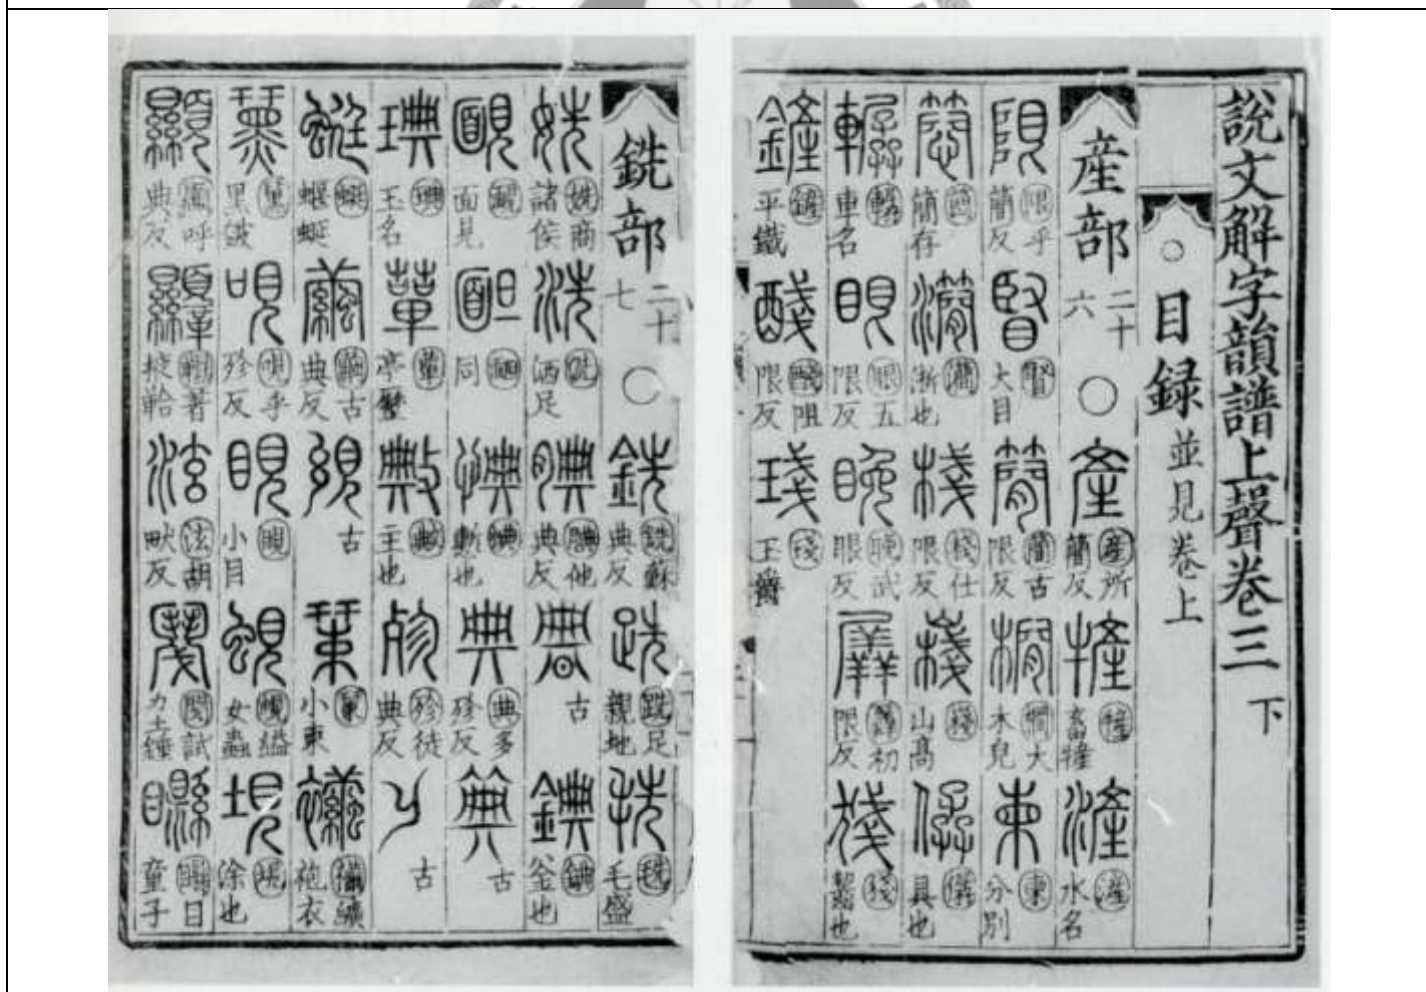 說文解字韻譜上聲卷三 下
○目録並見卷上
産部 二十六 ○ 產 產所簡反 㹌 㹌畜牷 滻 滻水名
限 限乎簡反 大目 簡 簡古限反 橌 橌大木皃 柬 柬分別
簡存 淅也 棧 棧仕限反 嶘 嶘山高 僝 僝具也
轏 轏車名 眼 眼五限反 睌 睌武限反 羼 羼初限反 齧也
鏟 鏟平鐵 醆 醆咀限反 琖 琖玉爵
銑部 二十七 ○ 銑 銑蘇典反 跣 跣足親地 毨 毨毛盛
姺 姺商諸侯 洗 洗洒足 腆 腆他典反 古 錪 錪釜也
靦 靦面見 䩄 䩄同 㥏 㥏慙也 典 典多殄反 古
琠 琠玉名 蕇 蕇亭歷 敟 敟主也 殄 殄徒典反 古
蜓 蜓蝘蜓 繭 繭古典反 絸 古 小束 襺 襺纊袍衣
黑皴 哯 哯乎殄反 睍 睍小目 蜆 蜆縊女蟲 垷 垷涂也
顯 顯呼典反 韅 韅著掖鞥 泫 泫胡畎反 試力士錘 目童子